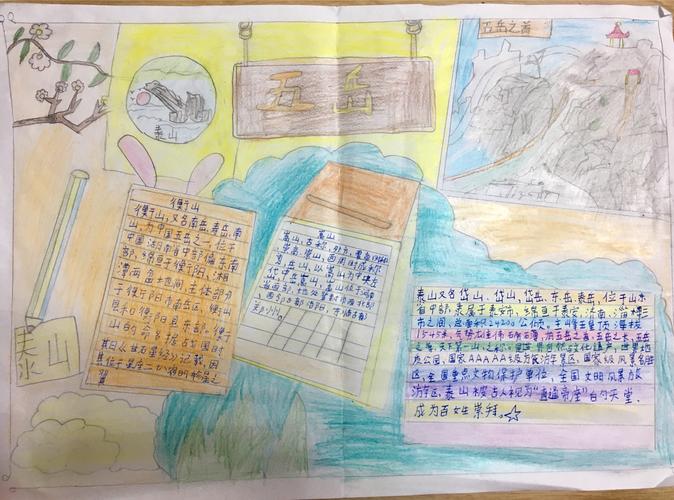 五岳
五岳之首
泰山
衡山
衡山,又名南岳、寿岳、南
山,为中国五岳之一,位于
中国湖南省中部偏东南
部,绵亘于衡阳、湘
潭两盆地间,主体部分
于衡阳市南岳区,衡山
县和衡阳县东部。衡
山的命名据战国时
期《甘石星经》记载,因
其位于星座二十八宿的轸星之
翼
嵩山
嵩山,古称
崇高
岳山,以嵩山为中央左
岱
泰山
泰山又名岱山、岱宗、岱岳、东岳、泰岳,位于山东
省中部,隶属于泰安市,绵亘于泰安、济南、淄博三
市之间,总面积24200公顷,主峰玉皇顶海拔
1545米,气势雄伟磅礴,有五岳之首、五岳之长、五岳
之尊、天下第一山之称。是世界自然与文化遗产,世界地
质公园,国家AAAAA级旅游景区,国家级风景名胜
区,全国重点文物保护单位,全国文明风景旅
游区,泰山被古人视为“直通帝座”的天堂,
成为百姓崇拜。